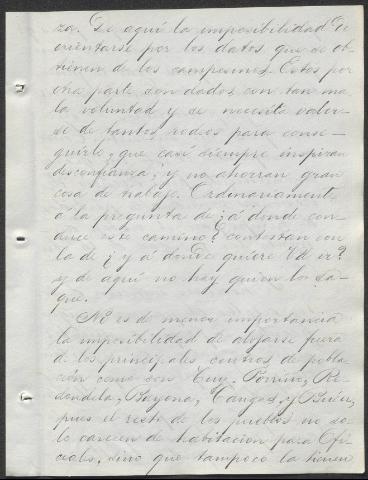 za. De aquí la imposibilidad de
orientarse por los datos que se ob-
tienen de los campesinos. Estos por
una parte son dados con tan ma-
la voluntad y se necesita valer-
se de tantos rodeos para conse-
guirlo, que casi siempre inspiran
desconfianza, y no ahorran gran
cosa de trabajo. Ordinariamente
á la pregunta de ¿á donde con-
duce este camino? contestan con
la de ¿y á donde quiere Vd ir?
y de aquí no hay quien los sa-
que.
No es de menor importancia
la imposibilidad de alojarse fuera
de los principales centros de pobla-
ción como son Tuy, Porriño, Re-
dondela, Bayona, Cangas y Bueu,
pues el resto de los pueblos no so-
lo carecen de habitación para Ofi-
ciales, sino que tampoco la tienen